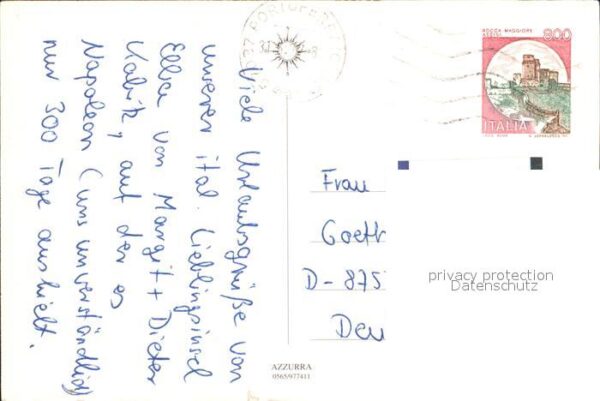 Viele Urlaubsgrüße von
unserer ital. Lieblingsinsel
Elba von Margit + Dieter
auf der es
Napoleon (uns unverständlich)
nur 300 Tage aushielt.
PORTOFERRAIO
ROCCA MAGGIORE
ASSISI
800
ITALIA
Frau
Goett
D-875
Deu
privacy protection
Datenschutz
AZZURRA
0565/977411